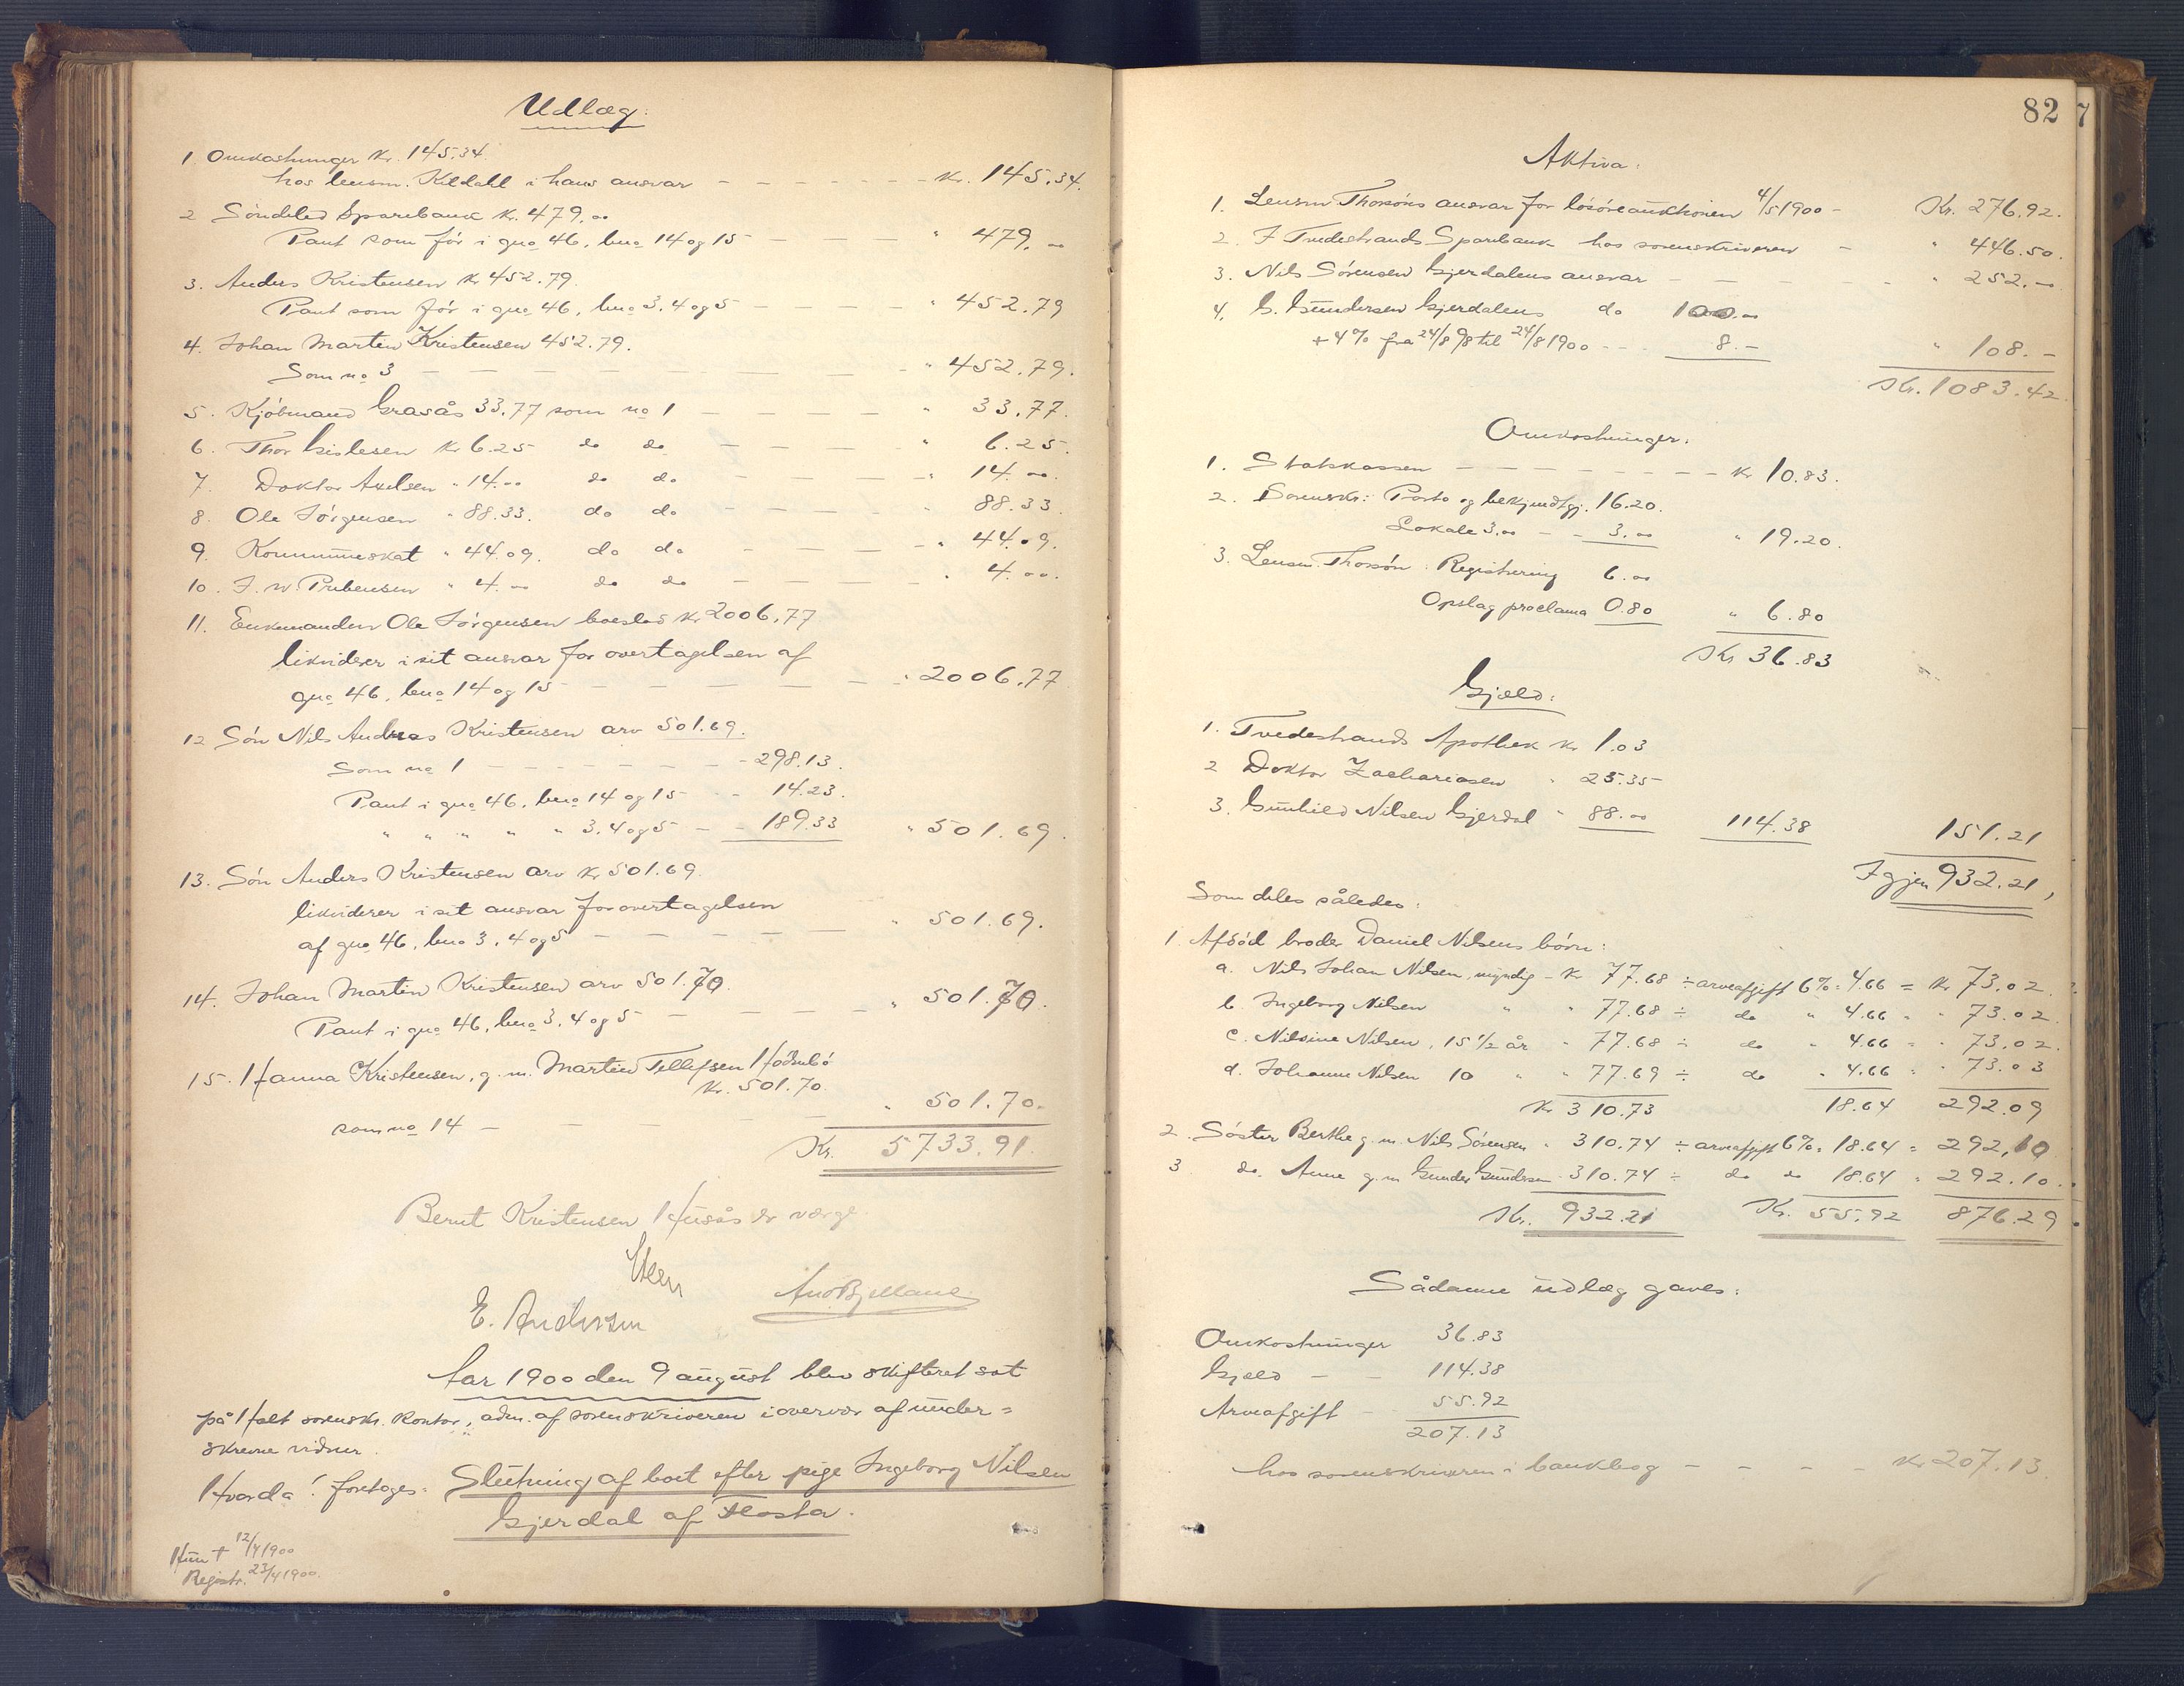 Udlæg:
1. Omkostninger Kr. 145.34.
hos lensm. Kildahl i hans ansvar - - - - - Kr. 145.34.
2 Söndeled Sparebank Kr. 479.00
Pant som för i gno 46, bno 14 og 15 - - - " 479.00
3. Anders Kristensen Kr 452.79.
Pant som för i gno 46, bno 3, 4 og 5 - - - " 452.79
4. Johan Martin Kristensen 452.79.
Som no 3 - - - - - - - " 452.79.
5. Kjöbmand Grasås 33.77 som no 1 - - - " 33.77.
6. Thor Gislesen Kr 6.25 do do - - - " 6.25.
7. Doktor Axelsen " 14.00 do do - - - " 14.00.
8. Ole Jörgensen " 88.33. do do - - - 88.33.
9. Kommuneskat " 44.09. do do - - - " 44.09.
10. J. W. Prebensen " 4.00 do do - - - " 4.00.
11. Enkemanden Ole Jörgensen boeslod Kr 2006,77
likviderer i sit ansvar for overtagelsen af
gno 46, bno 14 og 15 - - - - - " 2006.77
12 Sön Nils Andreas Kristensen arv 501.69.
Som no 1 - - - - - - 298.13.
Pant i gno 46, bno 14 og 15 - - 14.23.
" " " " " 3, 4 og 5 - - 189.33 " 501.69.
13. Sön Anders Kristensen arv Kr 501.69.
likviderer i sit ansvar for overtagelsen
af gno 46, bno 3, 4 og 5 - - - - " 501.69.
14. Johan Martin Kristensen arv 501.70.
Pant i gno 46, bno 3, 4 og 5 - - - - " 501.70.
15. Hanna Kristensen, g. m. Martin Tellefsen
Kr. 501.70.
som no 14 - - - - " 501.70.
Kr. 5733.91.
Bernt Kristensen Husås er værge.
Steen
E. Andersen
Aar 1900 den 9 august blev skifteret sat
på Holt sorenskr. kontor, adm. af sorenskriveren i overvær af under=
skrevne vidner.
Hvorda! foretoges: Slutning af boet efter pige Ingeborg Nilsen
Gjerdal af Flosta.
Hun † 12/4 1900
Registr. 23/4 1900.
82
7
Aktiva:
1. Lensm Thorsöns ansvar for lösöreauktionen 4/5 1900 - Kr. 276.92.
2. I Tvedestrands Sparebank hos sorenskriveren - " 446.50.
3. Nils Sörensen Gjerdalens ansvar - - - - - " 252.00
4. G. Gundersen Gjerdalens do 100.00
+ 4% fra 24/8 98 til 24/8 1900 - - - 8.- " 108.-
Kr. 1083.42.
Omkostninger:
1. Statskassen - - - - - - - Kr 10.83.
2. Sorenskr: Porto og bekjendtgj. 16.20.
Lokale 3.00 - - 3.00 " 19.20.
3. Lensm. Thorsön: Registrering 6.00
Opslag proclama 0.80 " 6.80
Kr 36.83
Gjæld:
1. Tvedestrands Apothek Kr 1.03
2 Doktor Zachariasen " 25.35
3. Gunhild Nilsen Gjerdal " 88.00 114.38 151.21
Igjen 932.21,
Som deles således:
1. Afdöd broder Daniel Nilsens börn:
a. Nils Johan Nilsen, myndig - Kr 77.68 ÷ arveafgift 6% = 4.66 = Kr 73.02.
b. Ingeborg Nilsen " " 77.68 ÷ do " 4.66 " " 73.02.
c. Nilsine Nilsen, 15 1/2 år " 77.68 ÷ do " 4.66 = " 73.02.
d. Johanne Nilsen 10 " " 77.69 ÷ do " 4.66 " " 73.03
Kr 310.73 18.64 292.09
2. Söster Berthe g. m. Nils Sörensen " 310.74 ÷ arveafgift 6% = 18.64 = 292.10
3 do. Anne g. m Gunder Gundersen 310.74 ÷ do do 18.64 = 292.10.
Kr. 932.21 Kr. 55.92 876.29
Sådanne udlæg gaves:
Omkostninger 36.83
Gjeld - - 114.38
Arveafgift - 55.92
207.13
hos sorenskriveren i bankbog - - - - Kr 207.13.